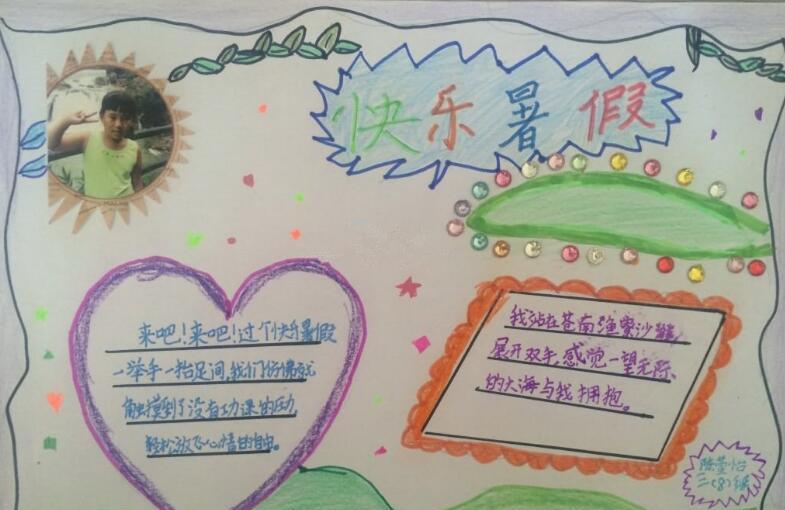 快乐暑假
来吧！来吧！过个快乐暑假
一举手一抬足间，我们仿佛就
触摸到了没有功课的压力
轻松放飞心情的自由。
我站在苍南渔寮沙滩，
展开双手，感觉一望无际
的大海与我拥抱。
陈莹怡
二（8）班